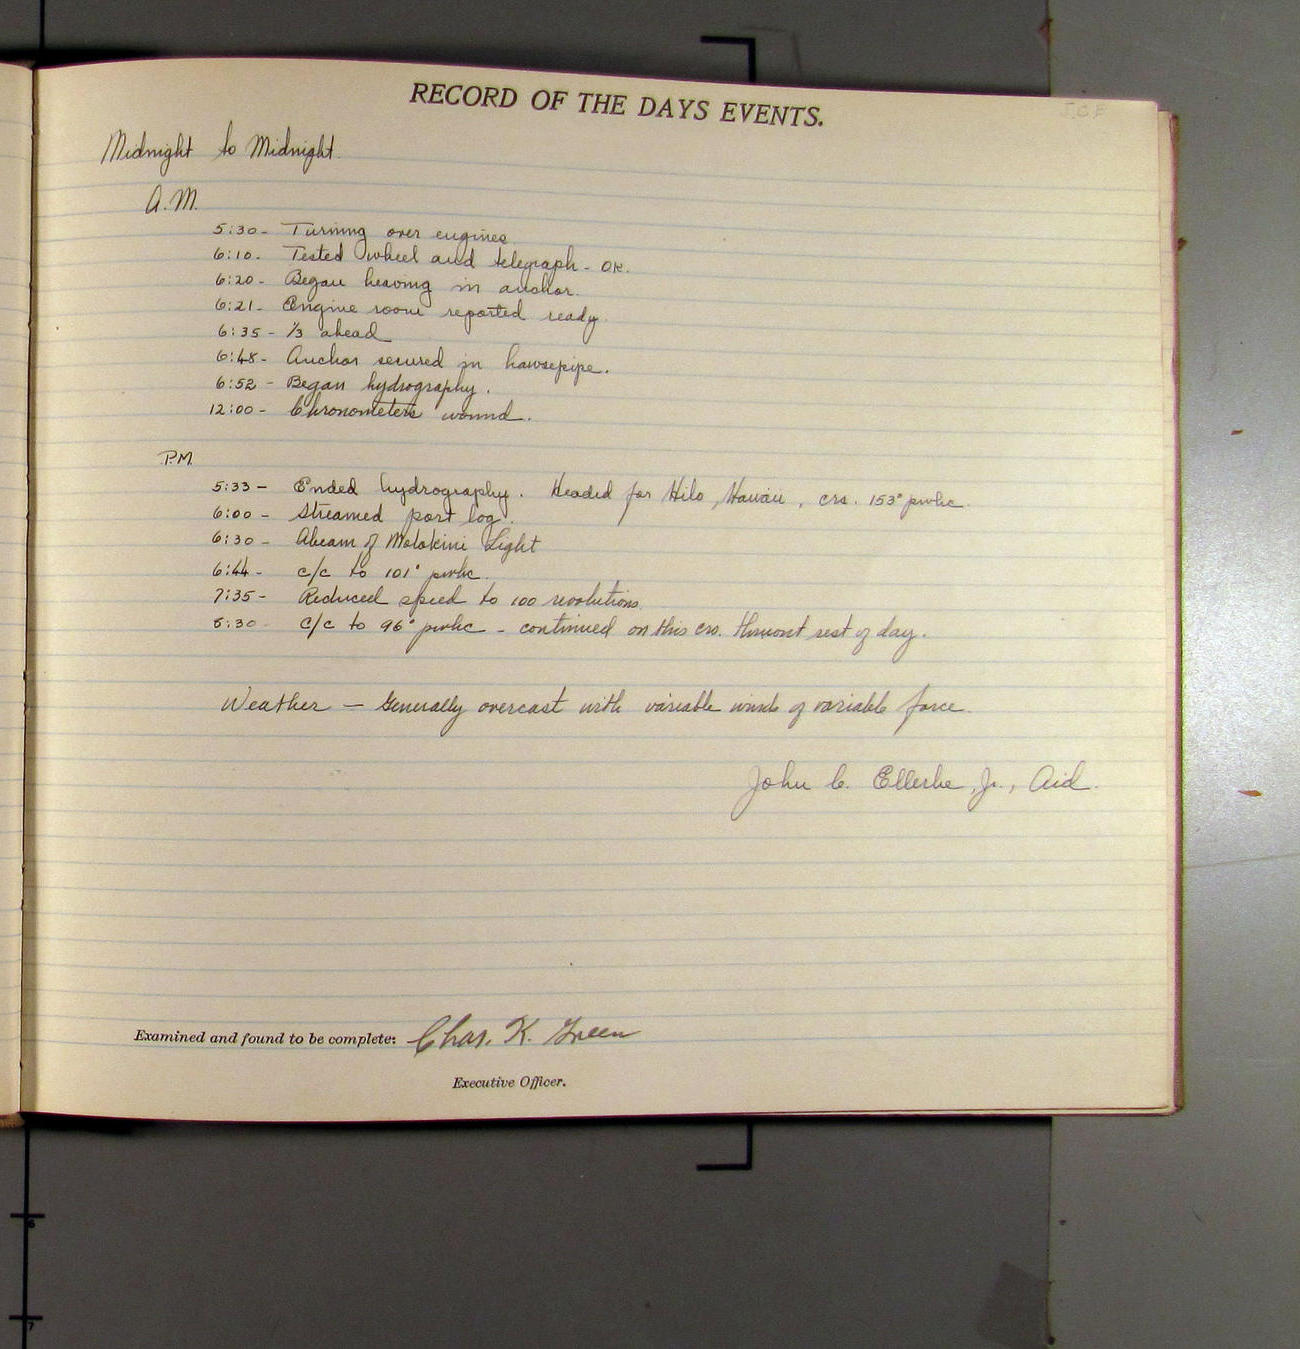 RECORD OF THE DAYS EVENTS.
J.C.E
Midnight to Midnight.
A.M.
5:30- Turning over engines
6:10- Tested wheel and telegraph - OK.
6:20- Began heaving in anchor.
6:21- Engine room reported ready.
6:35- 1/3 ahead
6:48- Anchor secured in hawsepipe.
6:52- Began hydrography.
12:00- Chronometers wound.
P.M.
5:33- Ended hydrography. Headed for Hilo, Hawaii, crs. 153° pwhc.
6:00- Streamed port log.
6:30- Abeam of Molokini Light
6:44- c/c to 101° pwhc.
7:35- Reduced speed to 100 revolutions.
8:30- c/c to 96° pwhc - continued on this crs. thruout rest of day.
Weather - Generally overcast with variable winds of variable force.
John C. Ellerbe, Jr., Aid.
Examined and found to be complete: Chas. K. Green
Executive Officer.
6
7